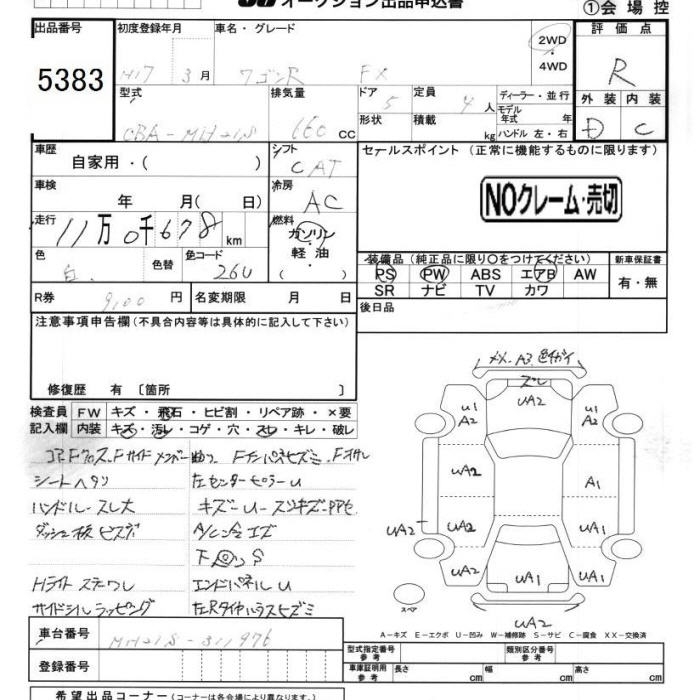 オークション出品申込書
①会場控
出品番号
初度登録年月
車名・グレード
評価点
5383
H17 3月
ワゴンR FX
2WD
・
4WD
R
型式
排気量
ドア
定員
ディーラー・並行
外装 内装
CBA-MH21S
660 cc
5
4 人
モデル年式 年
形状
積載
kg
ハンドル 左・右
D C
車歴
自家用・( )
シフト
CAT
セールスポイント (正常に機能するものに限ります)
車検
年 月( 日)
冷房
AC
NOクレーム・売切
走行
11万0千678 km
燃料
ガソリン
・
軽油
・
( )
色
白
色替
色コード
26U
装備品 (純正品に限り○をつけてください)
新車保証書
PS PW ABS エアB AW
SR ナビ TV カワ
有・無
R券
9,100 円
名変期限 月 日
後日品
注意事項申告欄(不具合内容等は具体的に記入して下さい)
修復歴 有〔箇所 〕
検査員
記入欄
FW キズ・飛石・ヒビ割・リペア跡・×要
内装 キズ・汚レ・コゲ・穴・スレ・キレ・破レ
シートヘタリ
左センターピラーU
ハンドルスレ大
ダッシュ板ビス穴
Hライト
エンドパネルU
サイドシルラッピング
車台番号
MH21S-311976
登録番号
希望出品コーナー (コーナーは各会場により異なります)
A3 色チガイ
ズレ
UA2
U1
A2
U1
A2
UA2
A1
UA2
UA2
UA1
UA2
UA1
UA1
UA2
スペア
A-キズ E-エクボ U-凹み W-補修跡 S-サビ C-腐食 XX-交換済
型式指定番号
参考
類別区分番号
参考
車庫証明用
参考
長さ cm
幅 cm
高さ cm